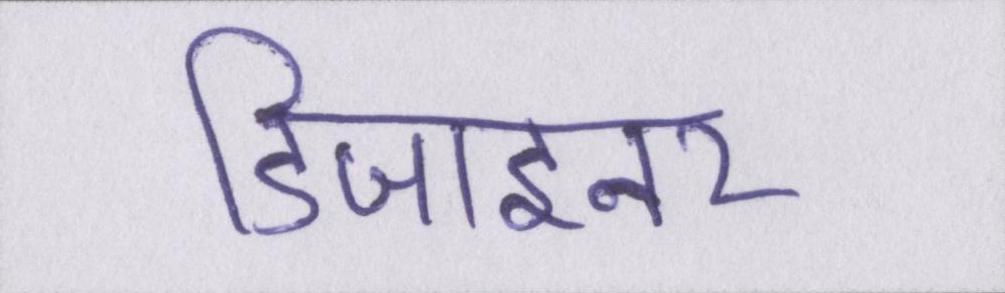 डिजाइनर